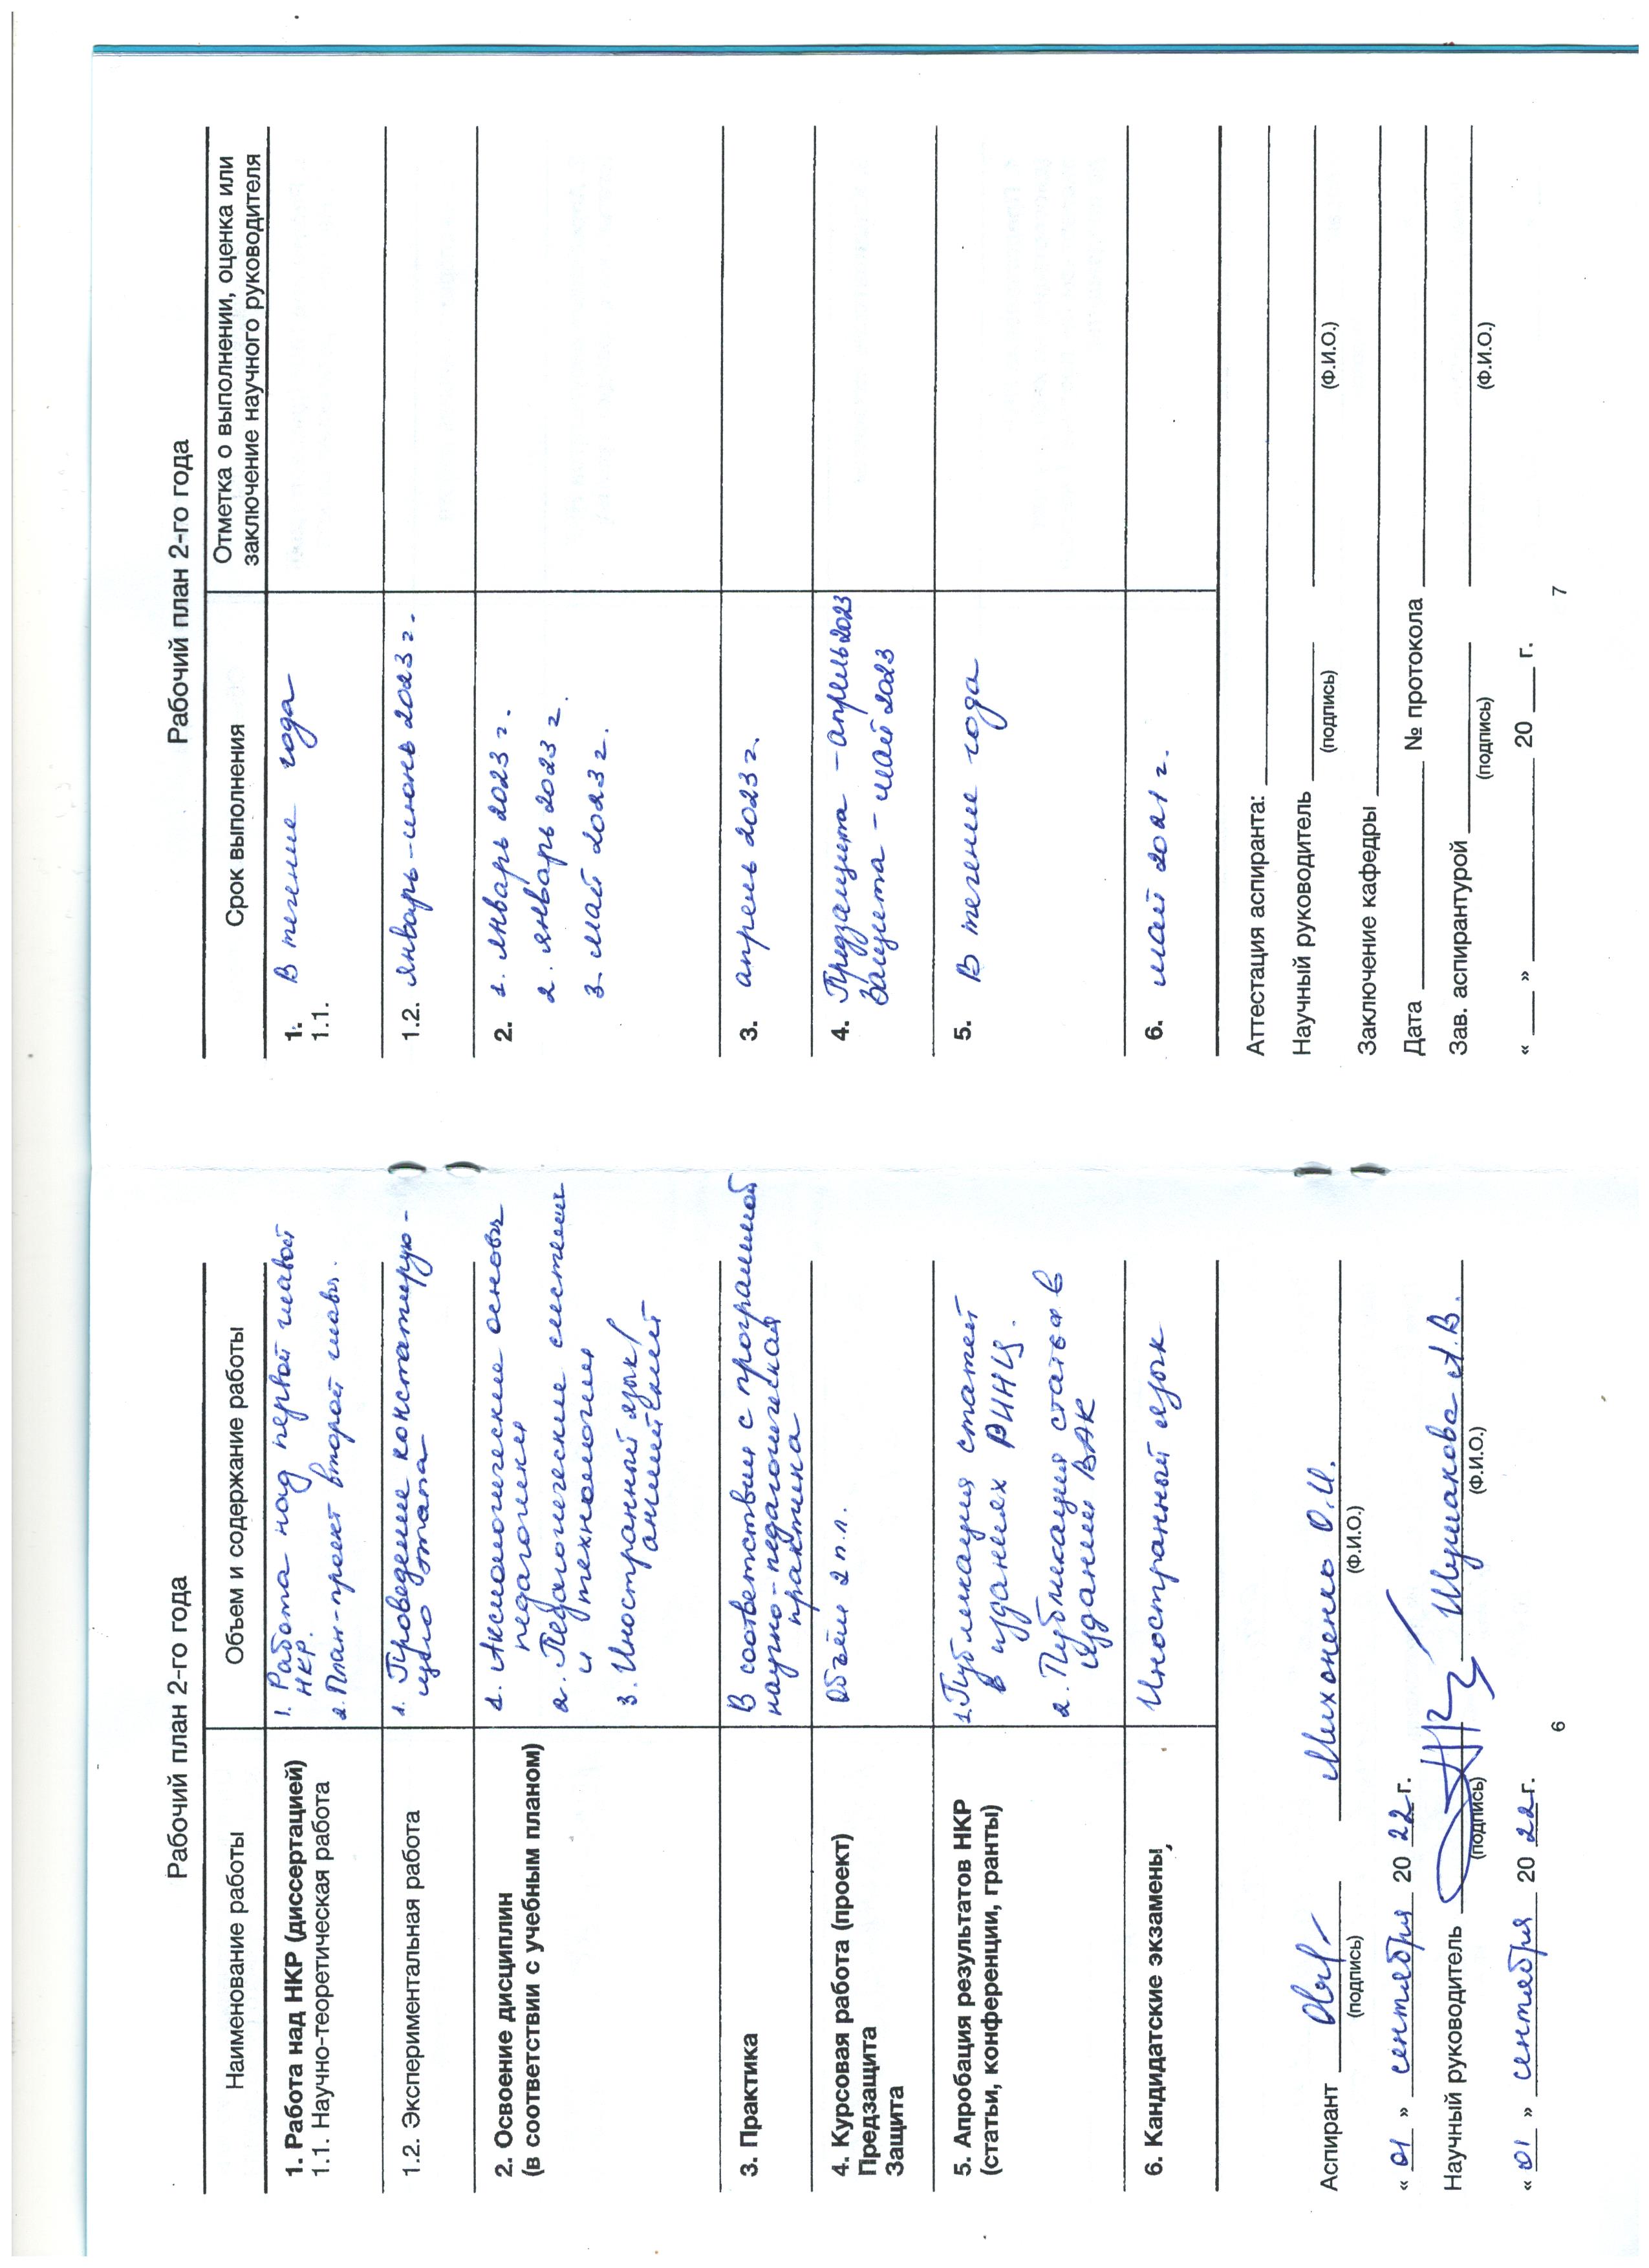 Рабочий план 2-го года
Наименование работы
Объем и содержание работы
1. Работа над НКР (диссертацией)
1.1. Научно-теоретическая работа
1. Работа над первой главой
НКР.
2. План-проект второй главы.
1.2. Экспериментальная работа
1. Проведение констатирую-
щего этапа
2. Освоение дисциплин
(в соответствии с учебным планом)
1. Аксиологические основы
педагогики
2. Педагогические системы
и технологии
3. Иностранный язык/
английский
3. Практика
В соответствии с программой
научно-педагогическая
практика
4. Курсовая работа (проект)
Предзащита
Защита
Объём 2 п.л.
5. Апробация результатов НКР
(статьи, конференции, гранты)
1. Публикация статей
в изданиях РИНЦ.
2. Публикация статьи в
издании ВАК
6. Кандидатские экзамены
Иностранный язык
Аспирант
Михоненко О.И.
(подпись)
(Ф.И.О.)
« 01 » сентября 20 22 г.
Научный руководитель
Шушакова А.В.
(подпись)
(Ф.И.О.)
« 01 » сентября 20 22 г.
6
Рабочий план 2-го года
Срок выполнения
Отметка о выполнении, оценка или
заключение научного руководителя
1.
1.1.
В течение года
1.2. январь-июнь 2023 г.
2.
1. январь 2023 г.
2. январь 2023 г.
3. май 2023 г.
3. апрель 2023 г.
4. Предзащита - апрель 2023
Защита - май 2023
5. В течение года
6. май 2021 г.
Аттестация аспиранта:
Научный руководитель
(подпись)
(Ф.И.О.)
Заключение кафедры
Дата № протокола
Зав. аспирантурой
(подпись)
(Ф.И.О.)
« » 20 г.
7